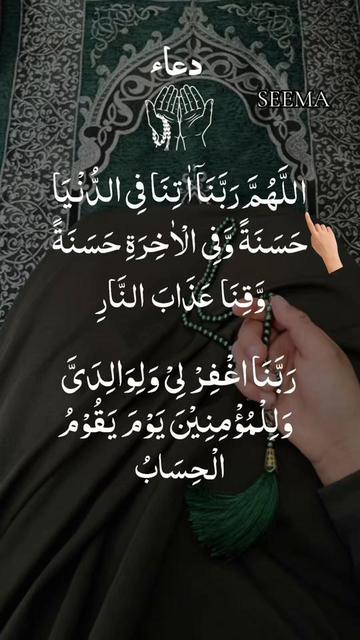 دعاء
SEEMA
اللَّهُمَّ رَبَّنَآ اٰتِنَا فِى الدُّنْيَا
حَسَنَةً وَّفِى الْاٰخِرَةِ حَسَنَةً
وَّقِنَا عَذَابَ النَّارِ
رَبَّنَا اغْفِرْ لِىْ وَلِوَالِدَىَّ
وَلِلْمُؤْمِنِيْنَ يَوْمَ يَقُوْمُ
الْحِسَابُ